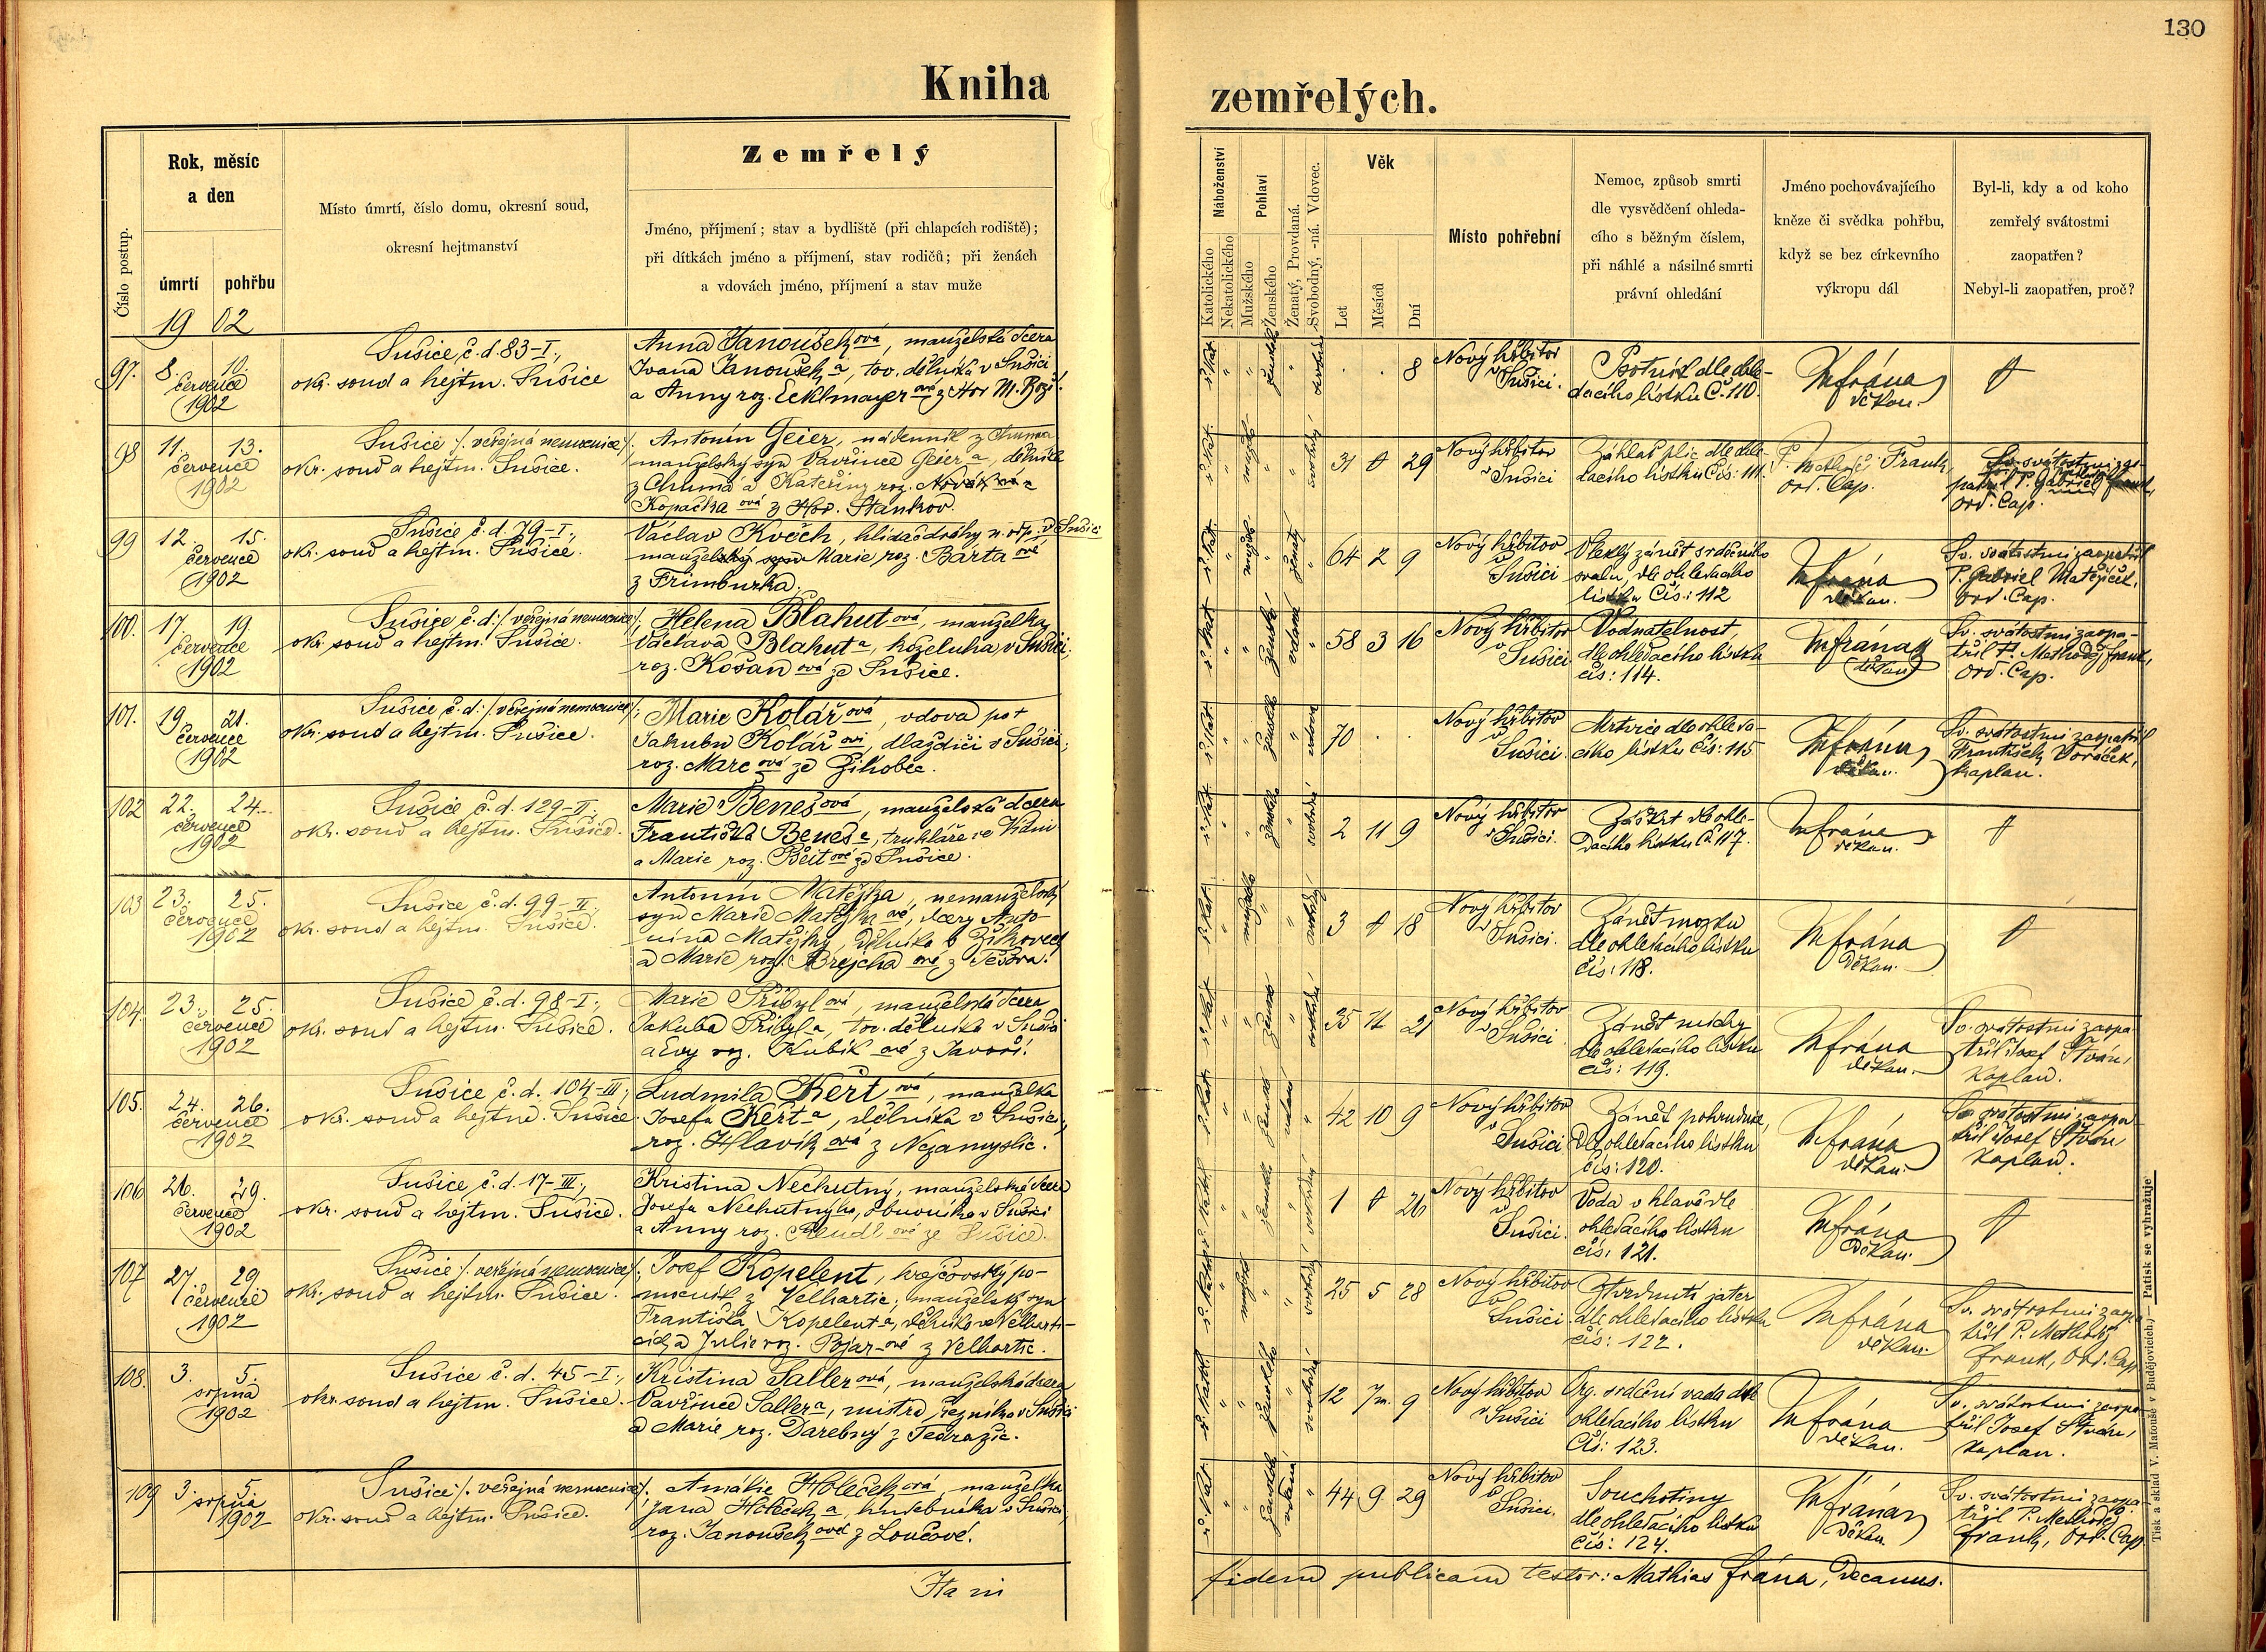 130
Kniha
zemřelých.
Číslo postup.
Rok, měsíc
a den
úmrtí
pohřbu
Místo úmrtí, číslo domu, okresní soud,
okresní hejtmanství
Zemřelý
Jméno, příjmení; stav a bydliště (při chlapcích rodiště);
při dítkách jméno a příjmení, stav rodičů; při ženách
a vdovách jméno, příjmení a stav muže
Náboženství
Katolického
Nekatolického
Pohlaví
Mužského
Ženského
Ženatý, Provdaná.
Svobodný, -ná. Vdovec.
Věk
Let
Měsíců
Dní
Místo pohřební
Nemoc, způsob smrti
dle vysvědčení ohleda-
cího s běžným číslem,
při náhlé a násilné smrti
právní ohledání
Jméno pochovávajícího
kněze či svědka pohřbu,
když se bez církevního
výkropu dál
Byl-li, kdy a od koho
zemřelý svátostmi
zaopatřen?
Nebyl-li zaopatřen, proč?
1902
97. 8. 10.
července
1902
Sušice, č. d. 83-I.,
okr. soud a hejtm. Sušice
Anna Janoušek ová, manželská dcera
Ivana Janoušek a, tov. dělníka v Sušici
a Anny roz. Ecklmayer ová z Hor M. Rož.
8
Nový hřbitov
v Sušici.
Psotník dle ohle-
dacího lístku Č. 110.
MFrána
děkan.
98 11. 13.
července
1902
Sušice /. veřejná nemocnice/.
okr. soud a hejtm. Sušice.
Antonín Geier, nádenník z Chuma
manželský syn Vavřince Geier a, dělníka
z Chuma a Kateřiny roz.
Kopačka ová z Hor. Staňkov.
31 29
Nový hřbitov
v Sušici
Záhlať plic dle ohle-
dacího lístku Čís: 111.
P. Methoď Frank,
ord. Cap.
Sv. svátostmi zao-
ord. Cap.
99 12. 15.
července
1902
Sušice č. d. 79-I.,
okr. soud a hejtm. Sušice.
Václav Kvěch, hlídač dráhy n. odp. v Sušici
Marie roz. Bárta ové
z Frimburka.
64 2 9
Nový hřbitov
v Sušici
Vleklý zánět srdečního
svalu, dle ohledacího
lístku Čís: 112
MFrána
děkan.
Sv. svátostmi zaopatřil
P. Gabriel Matějíček,
ord. Cap.
100. 17. 19
července
1902
Sušice č. d: /. veřejná nemocnice/.
okr. soud a hejtm. Sušice.
Helena Blahut ová, manželka
Václava Blahut a, koželuha v Sušici,
roz. Košan ová ze Sušice.
58 3 16
Nový hřbitov
v Sušici
Vodnatelnost,
dle ohledacího lístku
čís: 114.
MFrána
děkan
Sv. svátostmi zaopa-
třil P. Methoděj Frank,
ord. Cap.
101. 19. 21.
července
1902
Sušice č. d: /. veřejná nemocnice/.
okr. soud a hejtm. Sušice.
Marie Kolář ová, vdova po +
Jakubu Kolář ovi, dlaždiči v Sušici,
roz. Marc ová ze Žihobec.
70
Nový hřbitov
v Sušici.
Mrtvice dle ohleda-
cího lístku Čís: 115
MFrána
děkan.
Sv. svátostmi zaopatřil
František Voráček,
kaplan.
102 22. 24.
července
1902
Sušice č. d. 129-II.,
okr. soud a hejtm. Sušice.
Marie Beneš ová, manželská dcera
Františka Beneš a, truhláře ve Vídni
a Marie roz. ové ze Sušice.
2 11 9
Nový hřbitov
v Sušici.
Záškrt dle ohle-
dacího lístku Č. 117.
MFrána
děkan.
103 23. 25.
července
1902
Sušice č. d. 99-II.,
okr. soud a hejtm. Sušice.
Antonín Matějka, nemanželský
syn Marie Matějka ové, dcery Anto-
nína Matějky, dělníka v Žíkovech
a Marie roz. Brejcha ové z Těšova.
3 18
Nový hřbitov
v Sušici.
Zánět mozku
dle ohledacího lístku
čís: 118.
MFrána
Děkan.
104. 23. 25.
července
1902
Sušice č. d. 98-I.,
okr. soud a hejtm. Sušice.
Marie Přibyl ová, manželská dcera
Jakuba Přibyl a, tov. dělníka v Sušici
a Evy roz. Kubík ové z Javoří.
35 11 21
Nový hřbitov
v Sušici
Zánět míchy
dle ohledacího lístku
čís: 119.
MFrána
děkan.
Sv. svátostmi zaopa-
třil Josef Štván,
kaplan.
105. 24. 26.
července
1902
Sušice č. d. 104-III.,
okr. soud a hejtm. Sušice
Ludmila Kért ová, manželka
Josefa Kért a, dělníka v Sušici,
roz. Hlavík ová z Nezamyslic.
42 10 9
Nový hřbitov
v Sušici
Zánět pohrudnice,
dle ohledacího lístku
čís: 120.
MFrána
děkan.
Sv. svátostmi zaopa
třil Josef Štván,
kaplan.
106 26. 29.
července
1902
Sušice, č. d. 17-III.,
okr. soud a hejtm. Sušice.
Kristina Nechutný, manželská dcera
Josefa Nechutného, obuvníka v Sušici
a Anny roz. ové ze Sušice.
1 26
Nový hřbitov
v Sušici.
Voda v hlavě dle
ohledacího lístku
čís: 121.
MFrána
Děkan.
107 27. 29.
července
1902
Sušice /. veřejná nemocnice/.
okr. soud a hejtm. Sušice.
Josef Kopelent, krejčovský po-
mocník z Velhartic, manželský syn
Františka Kopelent a, dělníka ve Velharti-
cích a Julie roz. Pojar-ové z Velhartic.
25 5 28
Nový hřbitov
v Sušici
Ztvrdnutí jater
dle ohledacího lístku
čís: 122.
MFrána
děkan.
Sv. svátostmi zaopa
třil P. Methoděj
Frank, Ord. Cap
108. 3. 5.
srpna
1902
Sušice č. d. 45-I.,
okr. soud a hejtm. Sušice.
Kristina Saller ová, manželská dcera
Vavřince Saller a, mistra řezníka v Sušici
a Marie roz. Darebný z Tedražic.
12 7 m. 9
Nový hřbitov
v Sušici
Org. srdeční vada dle
ohledacího lístku
Čís: 123.
MFrána
děkan.
Sv. svátostmi zaopa-
třil Josef Štván,
kaplan.
109 3. 5.
srpna
1902
Sušice /. veřejná nemocnice/.
okr. soud a hejtm. Sušice.
Amálie Holeček ová, manželka
Jana Holečk a, hudebníka v Sušici,
roz. Janoušek ová z Loučové.
44 9 29
Nový hřbitov
v Sušici.
Souchotiny
dle ohledacího lístku
čís: 124.
MFrána
Děkan.
Sv. svátostmi zaopa-
třil P. Methoděj
Frank, Ord. Cap
Ita in
fidem publicam testor: Mathias Frána, Decanus.
Tisk a sklad V. Matouše v Budějovicích.) — Patisk se vyhražuje